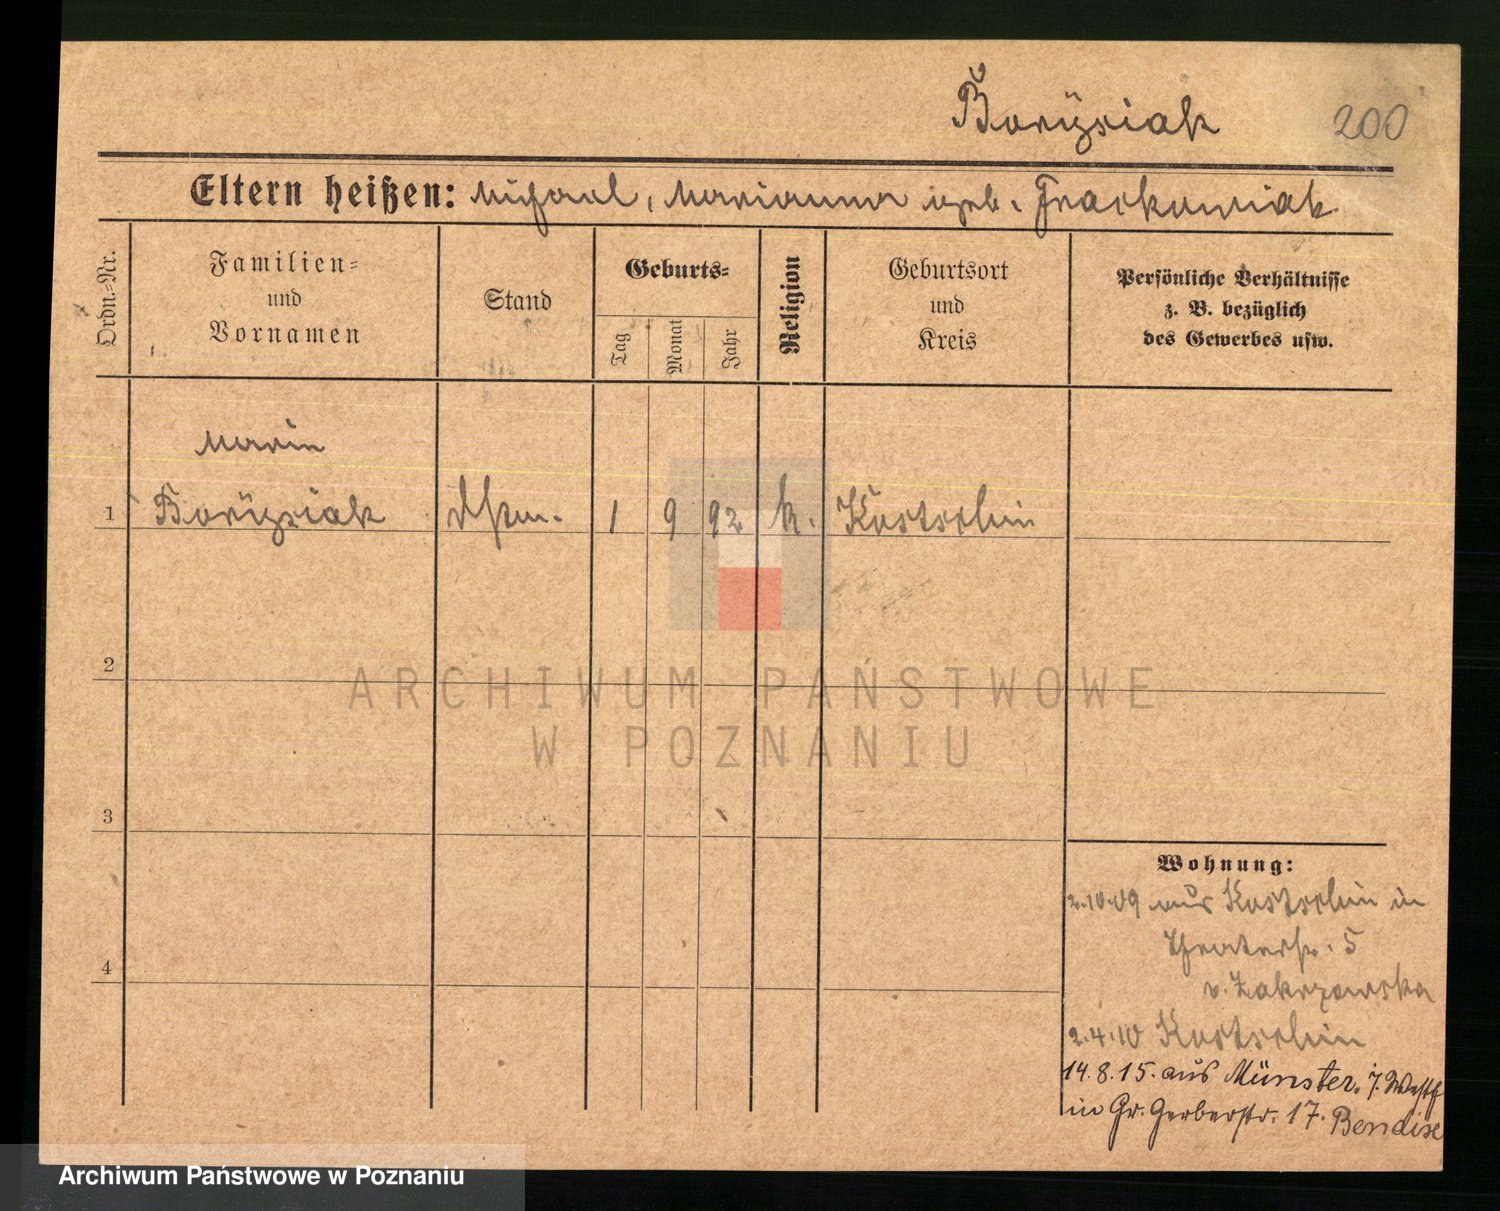 Borÿsiak 200
Eltern heißen: Michael, Marianna geb. Frackowiak
Ordn.=Nr.
Familien=
und
Vornamen
Stand
Geburts=
Tag
Monat
Jahr
Religion
Geburtsort
und
Kreis
Persönliche Verhältnisse
z. B. bezüglich
des Gewerbes usw.
Marie
1 Borÿsiak 1 9 92 k. Kostschin
2
3
4
Wohnung:
2.10.09 aus Kostschin in
Theaterstr. 5
v. Zakrzewska
2.4.10 Kostschin
14.8.15. aus Münster i. Westf
in Gr. Gerberstr. 17. Bendise
ARCHIWUM PAŃSTWOWE
W POZNANIU
Archiwum Państwowe w Poznaniu